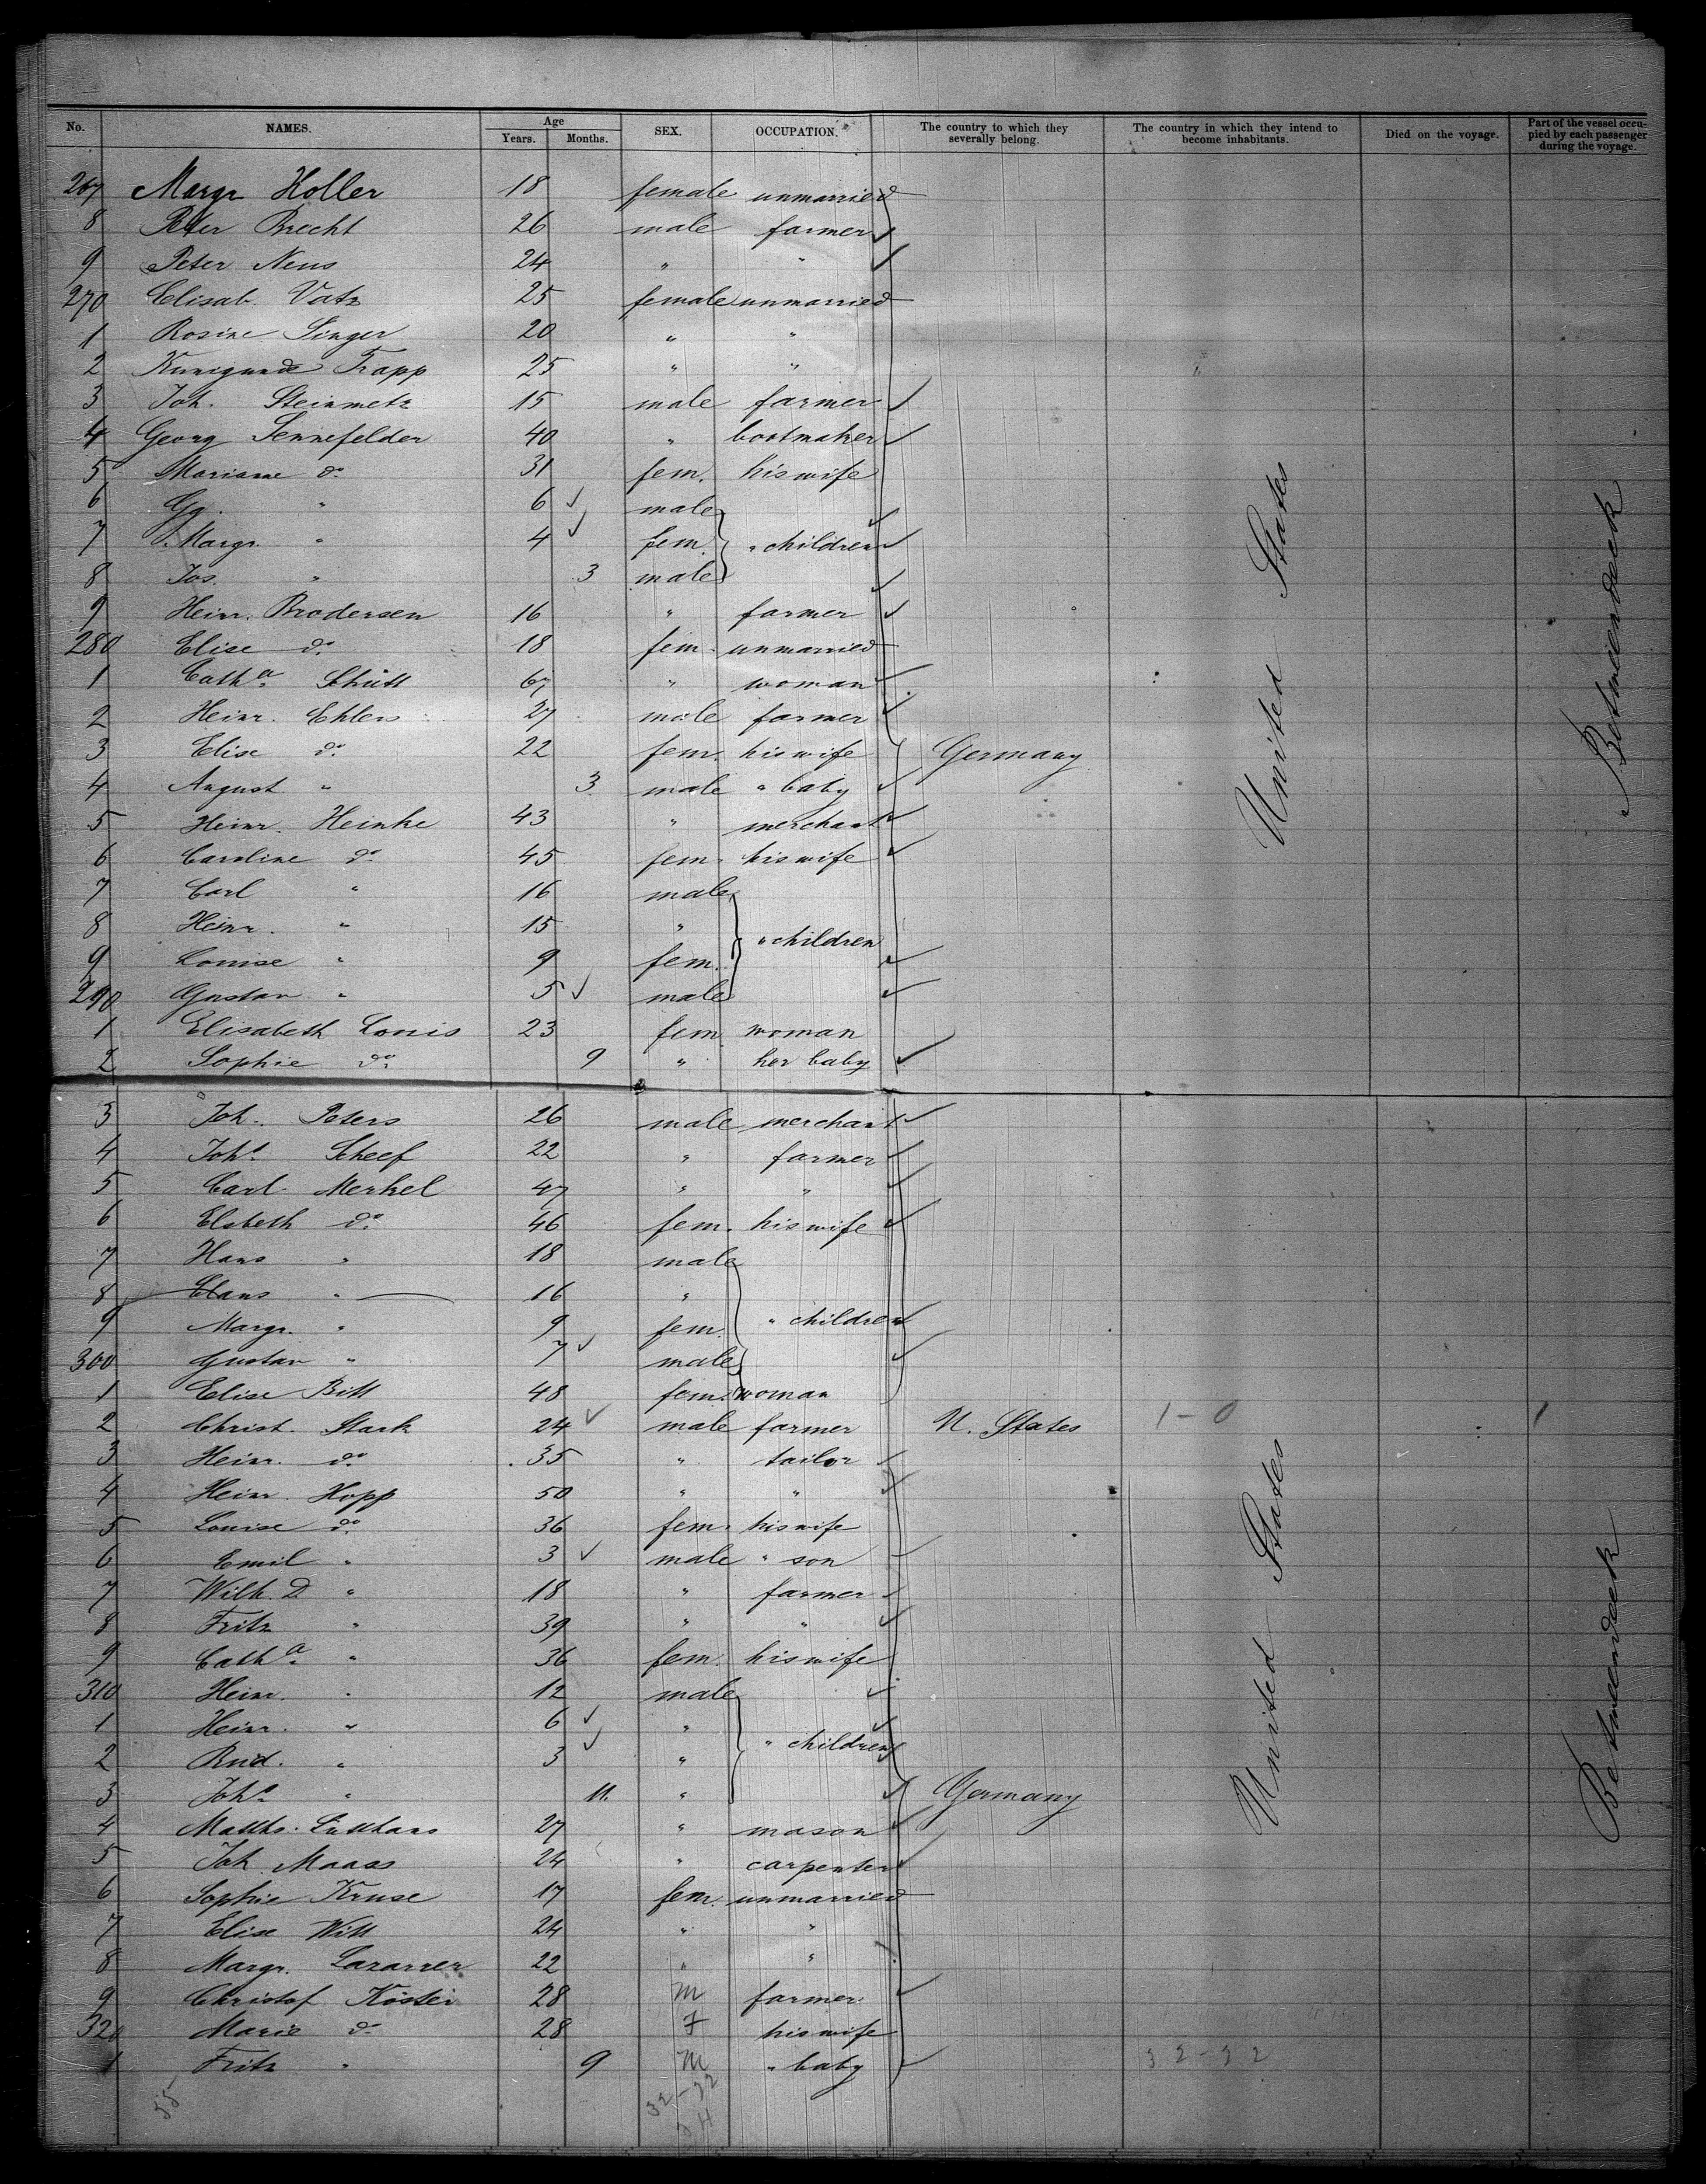 No. NAMES. Age Years. Months. SEX. OCCUPATION. The country to which they severally belong. The country in which they intend to become inhabitants. Died on the voyage. Part of the vessel occupied by each passenger during the voyage.
267 Margr Holler 18 female unmarried
8 Peter Brecht 26 male farmer
9 Peter Neus 24 " "
270 Elisab. Vatz 25 female unmarried
1 Rosine Singer 20 " "
2 Kunigunde Trapp 25 " "
3 Joh. Steinmetz 15 male farmer
4 Georg Sennefelder 40 " bootmaker
5 Mariane do 31 fem. his wife
6 Gg. " 6 male
7 Margr. " 4 fem. " children
8 Jos. " 3 male
9 Heinr. Brodersen 16 " farmer
280 Elise do 18 fem. unmarried
1 Catha Schütt 67 " woman
2 Heinr. Ehlers 27 male farmer
3 Elise do 22 fem. his wife Germany United States Betweendeck
4 August " 3 male " baby
5 Heinr. Heinke 43 " merchant
6 Caroline do 45 fem. his wife
7 Carl " 16 male
8 Heinr. " 15 " " children
9 Louise " 9 fem.
290 Gustav " 5 male
1 Elisabeth Louis 23 fem woman
2 Sophie do 9 " her baby
3 Joh. Peters 26 male merchant
4 Johs Scheef 22 " farmer
5 Carl Merkel 47 " "
6 Elsbeth do 46 fem. his wife
7 Hans " 18 male
8 Claus " 16 "
9 Margr. " 9 fem. " children
300 Gustav " 7 male
1 Elise Bitt 48 fem. woman
2 Christ. Stark 24 male farmer U. States 1-0 1
3 Heinr. do 35 " tailor
4 Heinr. Hopp 50 " "
5 Louise do 36 fem. his wife
6 Emil " 3 male " son
7 Wilh. D " 18 " farmer
8 Fritz " 39 " "
9 Catha " 36 fem. his wife
310 Heinr. " 12 male
1 Heinr. " 6 "
2 Rud. " 3 " " children
3 Johs " 11. " Germany United States Betweendeck
4 Matths. Lutthans 27 " mason
5 Joh. Maass 24 " carpenter
6 Sophie Kruse 17 fem. unmarried
7 Elise Witt 24 " "
8 Margr. Lazarrer 22 " "
9 Christof Köster 28 M farmer
320 Marie do 28 F his wife
1 Fritz " 9 M " baby 32-22
55 32-22